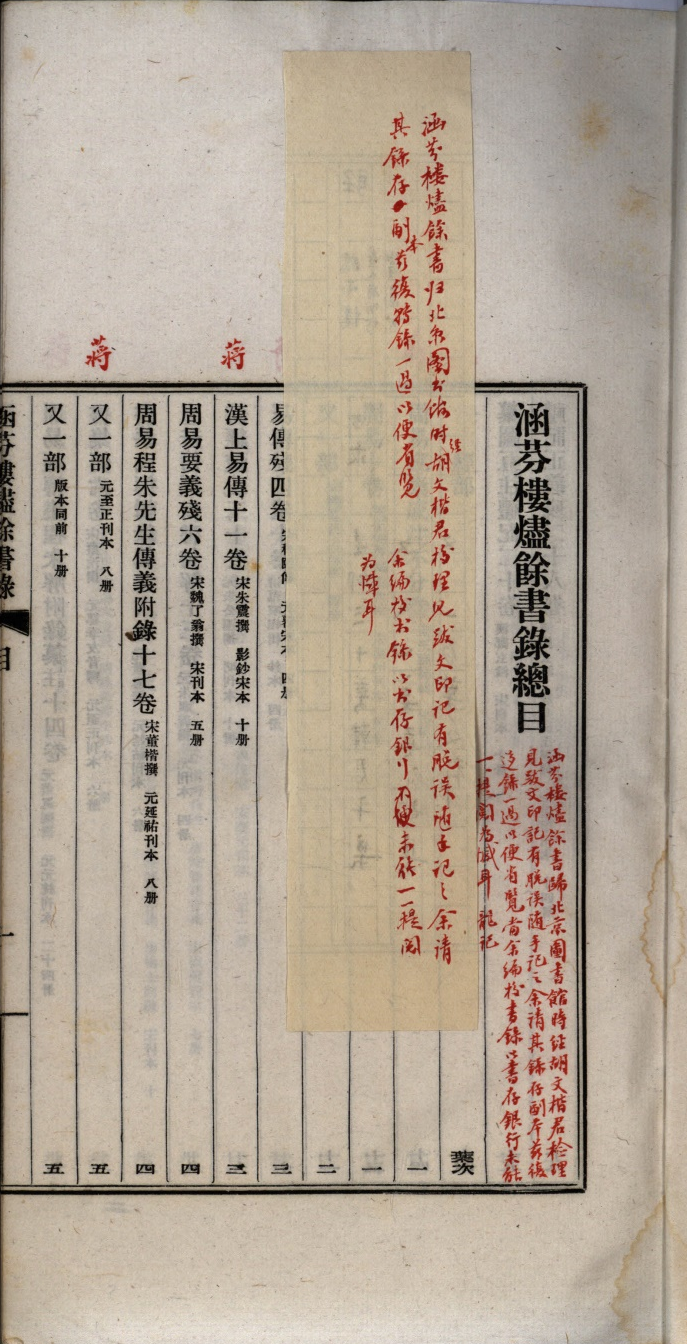 涵芬樓燼餘書錄總目
涵芬樓燼餘書歸北京圖書館時經胡文楷君檢理
見跋文印記有脫誤隨手記之余請其錄存副本茲復
迻錄一過以便省覽當余編校書錄以書存銀行未能
一一提閱為憾耳 龍記
葉次
涵芬樓燼餘書归北京圖书馆时經胡文楷君檢理见跋文印记有脫误随手记之余请
其錄存副本茲復轉錄一過以便省覽
余编校书錄以书存銀行不便未能一一提阅
为憾耳
一
一
二
易傳殘四卷 三
漢上易傳十一卷 宋朱震撰 影鈔宋本 十册 三
蔣
周易要義殘六卷 宋魏了翁撰 宋刊本 五册 四
周易程朱先生傳義附錄十七卷 宋董楷撰 元延祐刊本 八册 四
又一部 元至正刊本 八册 五
蔣
又一部 版本同前 十册 五
涵芬樓燼餘書錄 目 一